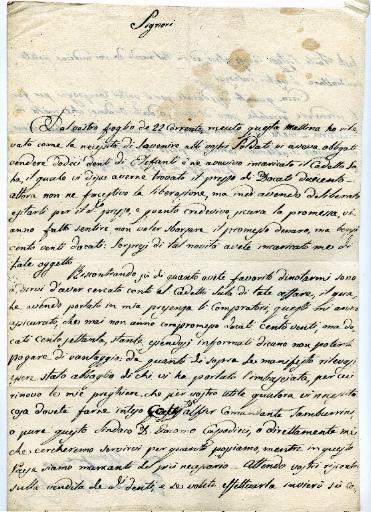 Signori
Dal vostro foglio de 22 corrente, ricevuto questa mattina ho rile-
vato come la necessità di sovvenire alli vostri Soldati vi aveva obligati
vendere dodeci denti di Elefanti e ne avevivo incaricato il Cadetto Sa-
la, il quale vi dipu averne trovato il prezzo di Docati duecento.
allora non ne facestivo la liberazione, ma indi avendo deliberato
esitarli per il d.° prezzo, e quanto credevivo sicura la promessa, vi
anno fatto sentire non voler sborzare il promesso denaro, ma bensì
cento venti docati. Sorpresi di tal novità avete incaricato me di
tale oggetto.
Riscontrando jo di quanto avete favorito dinotarmi sono
a dirvi d'aver cercato conto al Cadetto Sala di tale affare, il qua-
le avendo portato in mia presenza li Compratori, questi mi anno
assicurato, che mai non anno compromesso docati Cento venti, ma do-
cati cento settanta, stante essendosi informati dicano non poterli
pagare di vantaggio: da quanto di sopra ho manifesto rilevasi
essere stato abbaglio di chi vi ha portato l'imbasciata, per cui
rinovo le mie preghiere, che per vostro utile qualora vi necessita
cosa dovete farne inteso all'Sig.r Comandante Tamburrini,
o pure questo Sindico D. Simone Capodieci, o direttamente me
che cercheremo servirvi per quanto possiamo, mentre in questo
Paese siamo mancanti del più necessario. Attendo vostri riscontri
sulla vendita de d.i denti, e se volete effettuarla invierò su co-